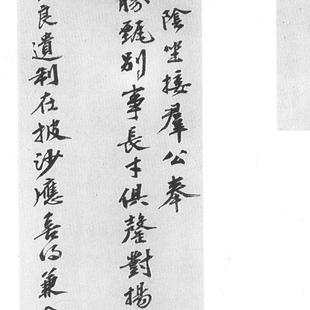 陰坐接群公奉
勝甄別事長才俱罄對揚
良遺利在披沙應喜得兼